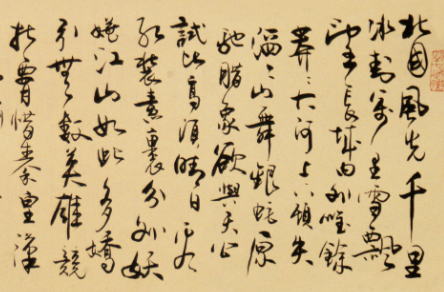 北國風光千里
冰封萬里雪飄
望長城内外唯餘
莽〻大河上下頓失
滔〻山舞銀蛇原
馳腊象欲與天公
試比高須晴日看
紅裝素裹分外妖
嬈江山如此多嬌
引無數英雄競
折腰惜秦皇漢